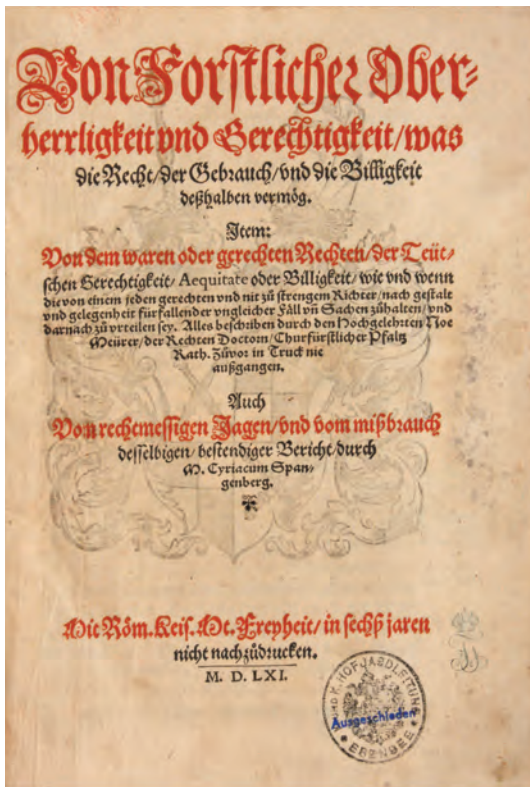 Von Forstlicher Ober-
herrligkeit vnd Gerechtigkeit/was
die Recht/der Gebrauch/vnd die Billigkeit
deßhalben vermög.
Item:
Von dem waren oder gerechten Rechten/der Teüt-
schen Gerechtigkeit/Aequitate oder Billigkeit/wie vnd wenn
die von einem jeden gerechten vnd nit zů strengem Richter/nach gestalt
vnd gelegenheit fürfallender vngleicher Fäll vñ Sachen zůhalten/vnd
darnach zů vrteilen sey. Alles beschriben durch den Hochgelehrten Noe
Meürer/der Rechten Doctorn/Churfürstlicher Pfaltz
Rath. Zůvor in Truck nie
außgangen.
Auch
Von rechtmessigen Jagen/vnd vom mißbrauch
desselbigen/bestendiger Bericht/durch
M. Cyriacum Span-
genberg.
Mit Röm. Keis. Mt. Freyheit/in sechß jaren
nicht nachzůdrucken.
M. D. LXI.
UND K. HOFJAGDLEITUNG
Ausgeschieden
* EBENSEE *